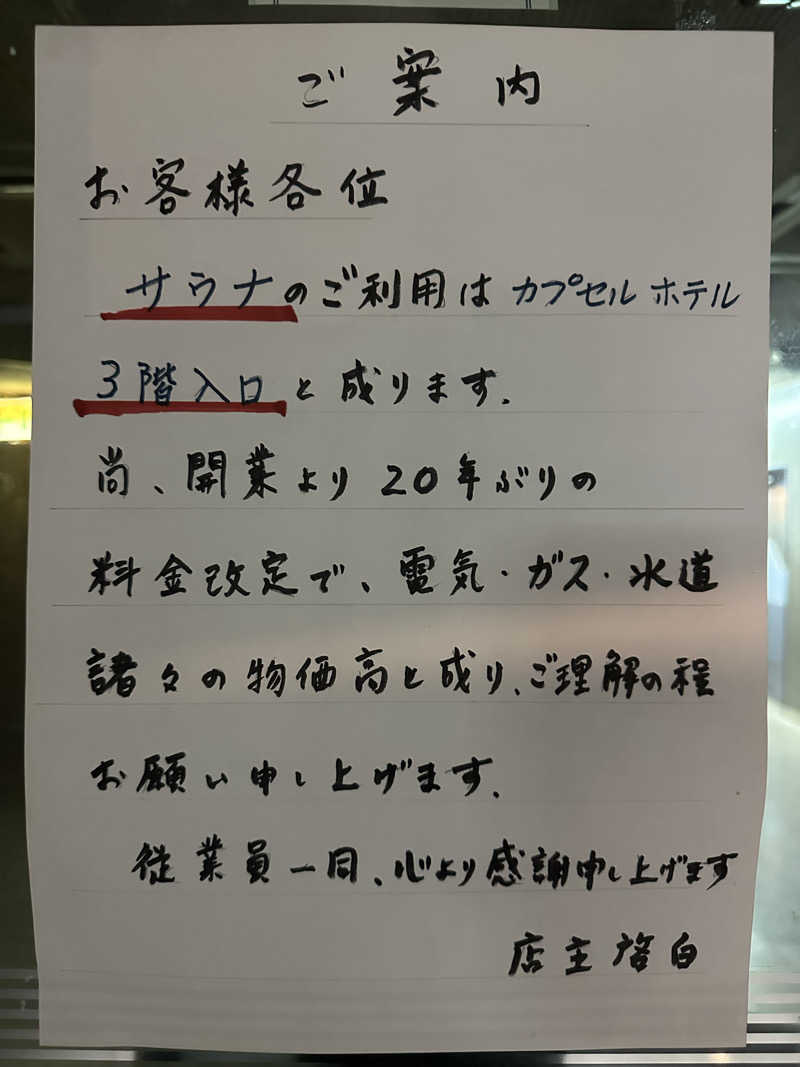 ご案内
お客様各位
サウナのご利用は カプセルホテル
3階入口と成ります.
尚、開業より20年ぶりの
料金改定で、電気・ガス・水道
諸々の物価高と成り、ご理解の程
お願い申し上げます.
従業員一同、心より感謝申し上げます
店主啓白